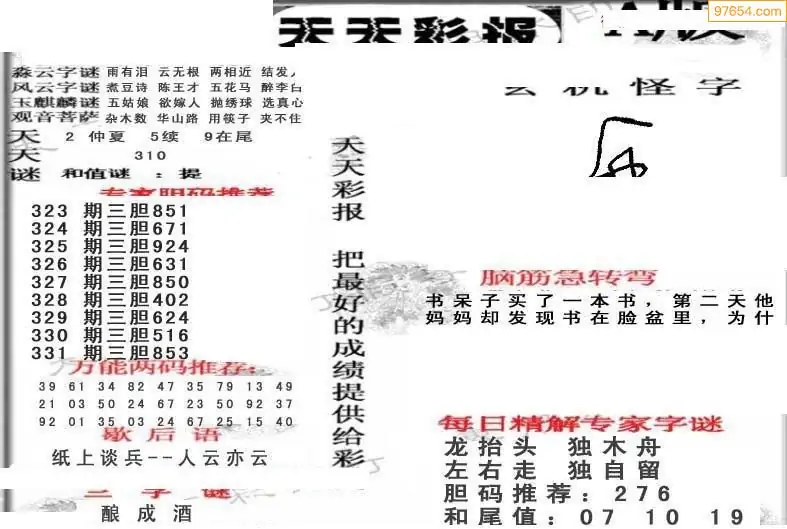 97654.com
天天彩报
A版
玄机怪字
森云字谜 雨有泪 云无根 两相近 结发人
风云字谜 煮豆诗 陈王才 五花马 醉李白
玉麒麟谜 五姑娘 欲嫁人 抛绣球 选真心
观音菩萨 杂木数 华山路 用筷子 夹不住
天 2 仲夏 5续 9在尾
天 310
谜 和值谜 : 提
专家胆码推荐
323 期三胆851
324 期三胆671
325 期三胆924
326 期三胆631
327 期三胆850
328 期三胆402
329 期三胆624
330 期三胆516
331 期三胆853
万能两码推荐:
39 61 34 82 47 35 79 13 49
21 03 50 24 67 23 50 92 37
92 01 35 03 24 67 25 15 40
歇后语
纸上谈兵--人云亦云
三字谜
酿成酒
天天彩报 把最好的成绩提供给彩
脑筋急转弯
书呆子买了一本书，第二天他
妈妈却发现书在脸盆里，为什
每日精解专家字谜
龙抬头 独木舟
左右走 独自留
胆码推荐: 276
和尾值: 07 10 19